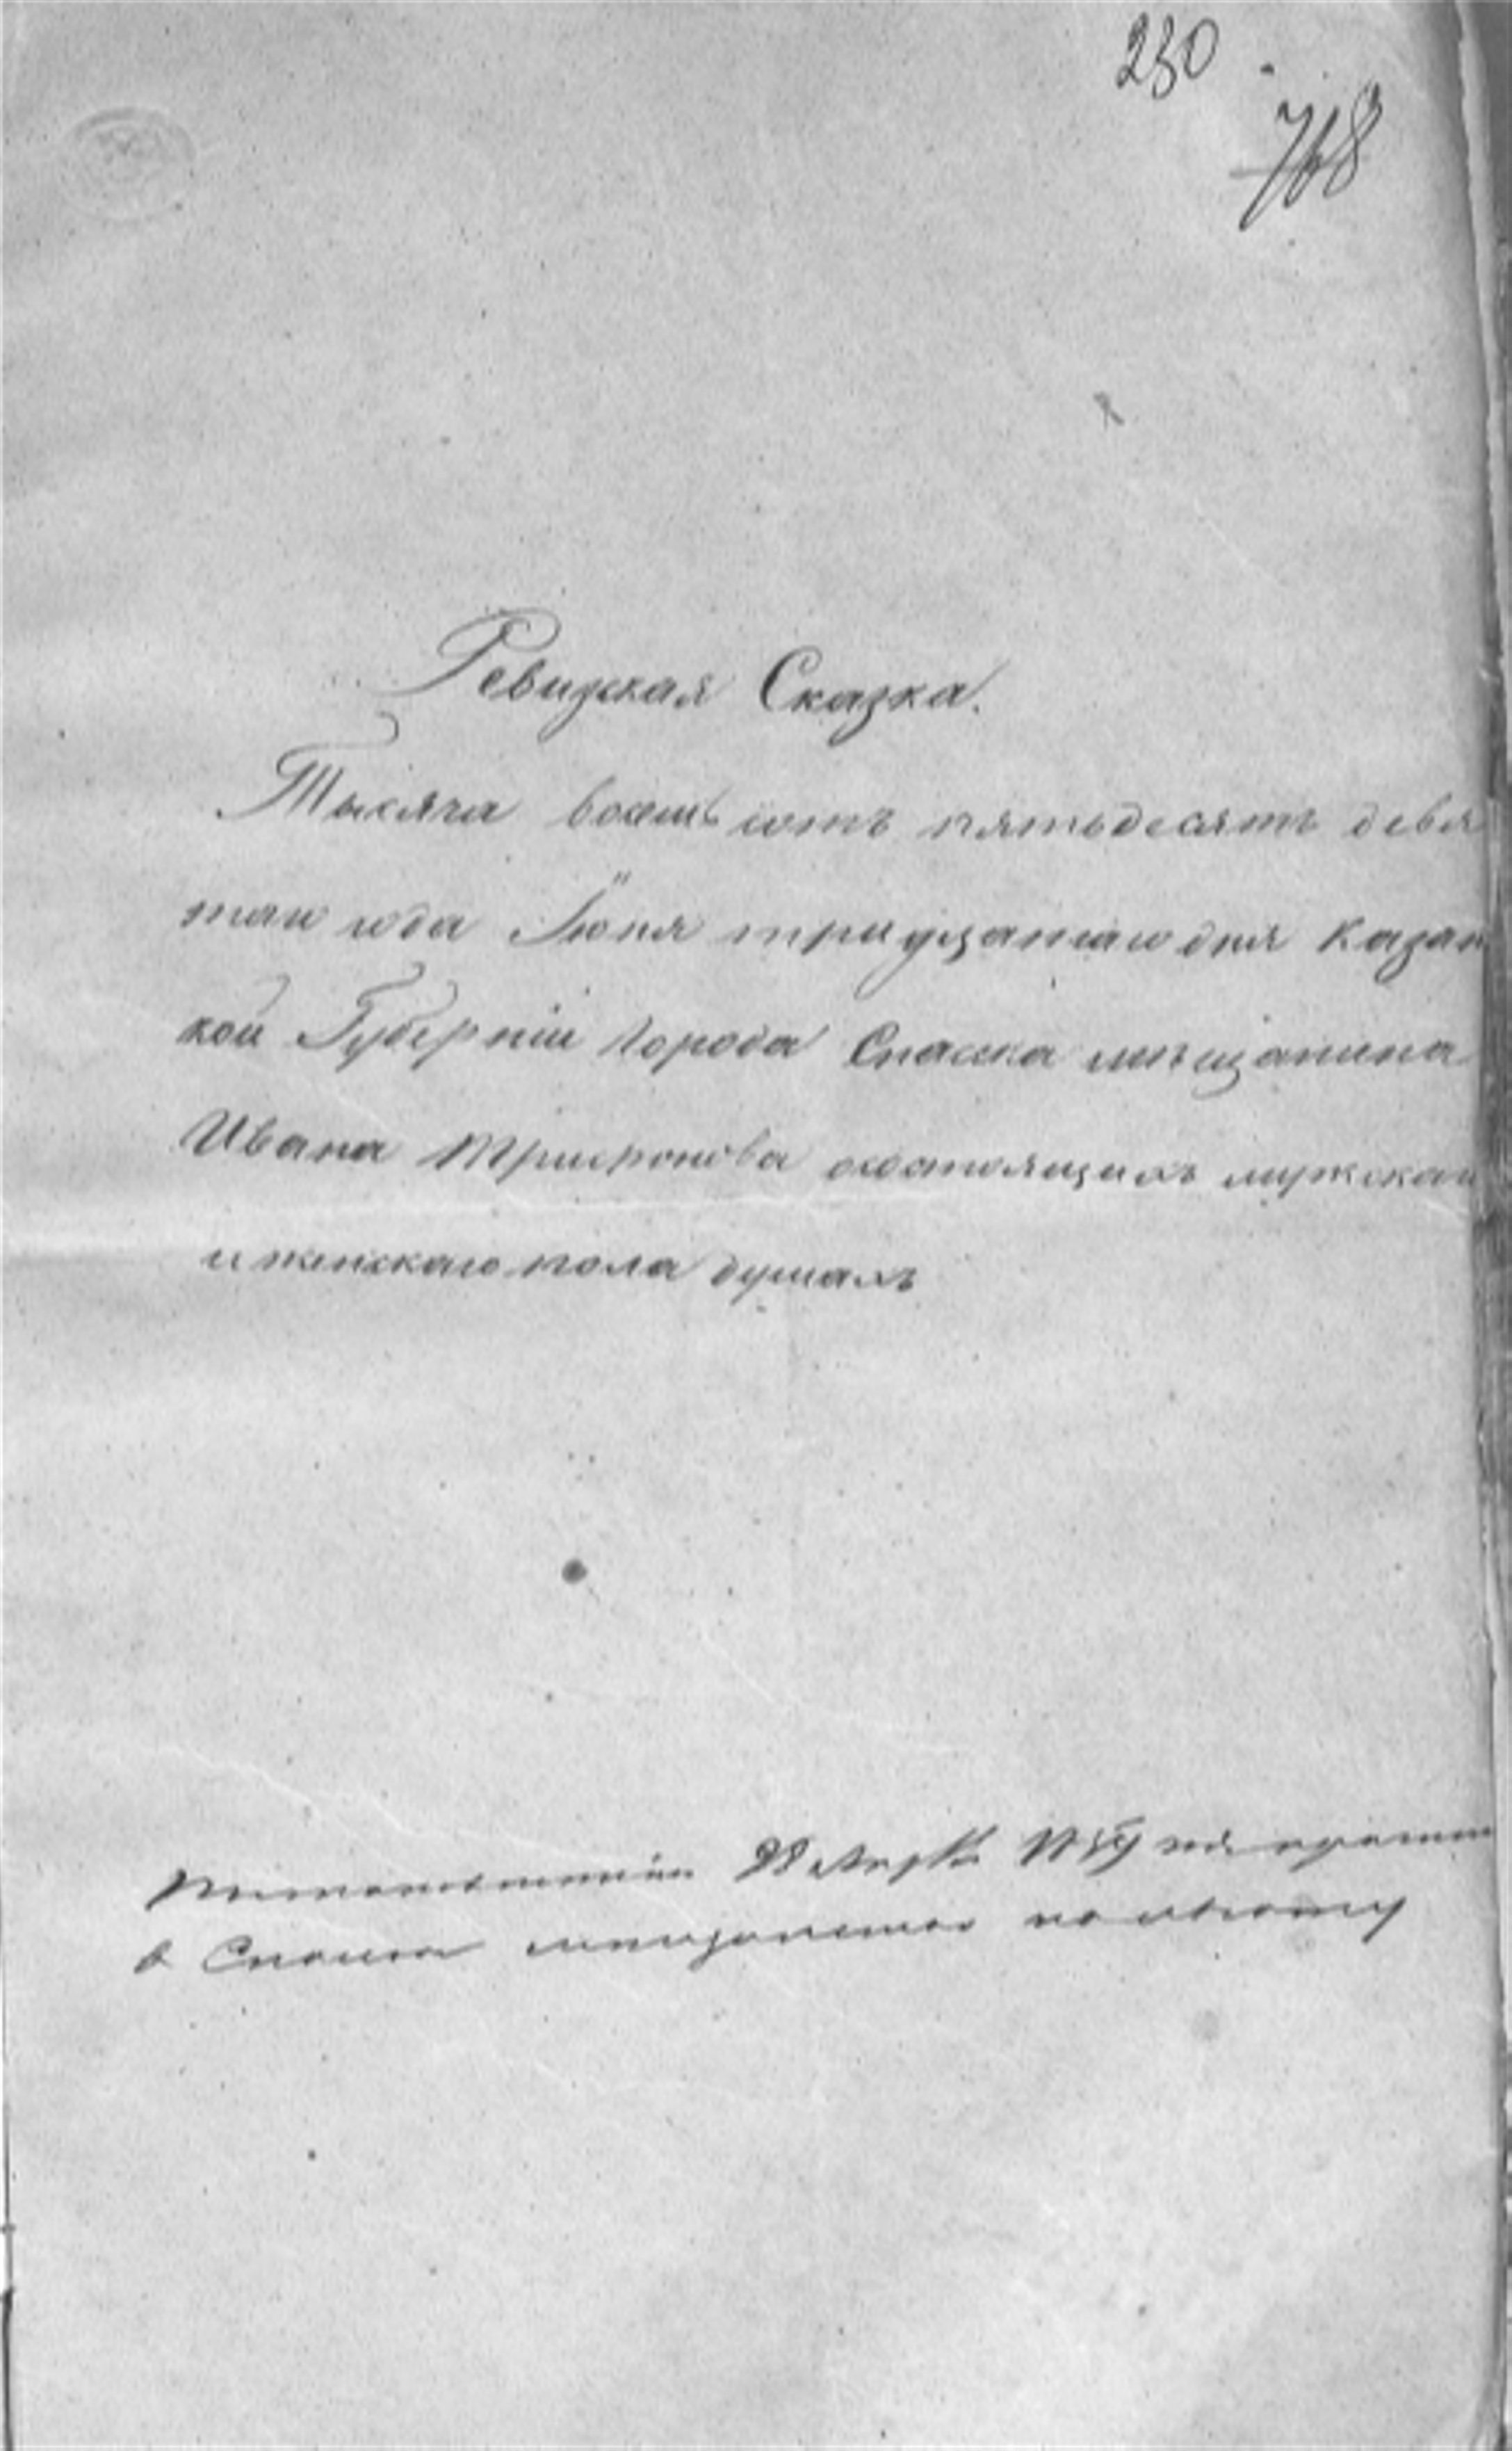 230
768
Ревизкая Сказка.
Тысяча восемь сотъ пятьдесятъ девя
таго года Іюня тридцатаго дня Казан
кой Губерніи города Спаска мѣщанина
Ивана Трифонова осостоящихъ мужскаго
и женскаго пола душахъ
в Спаска